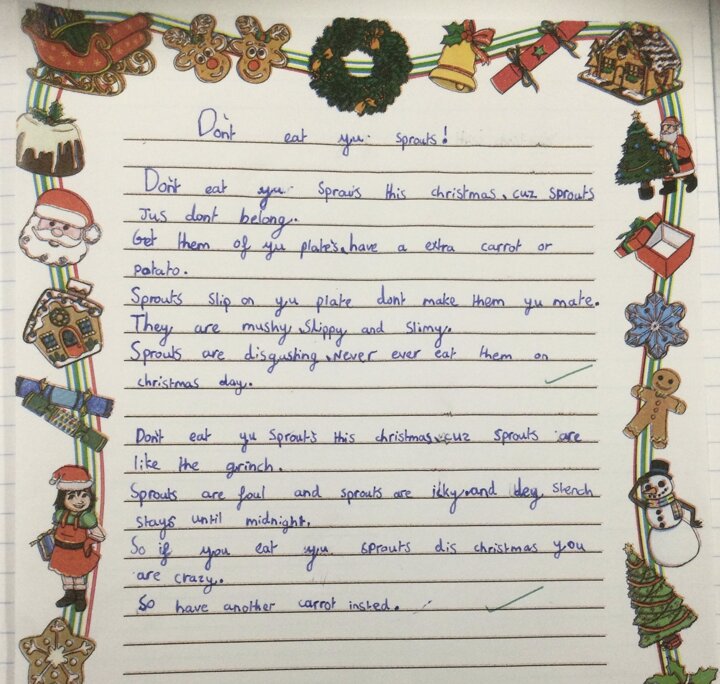 Don't eat yu sprouts!
Don't eat yu Sprouts this christmas, cuz sprouts
Jus dont belong.
Get them of yu plate's, have a extra carrot or
potato.
Sprouts slip on yu plate dont make them yu mate.
They are mushy, slippy and slimy.
Sprouts are disgusting, never ever eat them on
christmas day.
Don't eat yu Sprouts this christmas, cuz sprouts are
like the grinch.
Sprouts are foul and sprouts are icky, and dey stench
stays until midnight.
So if you eat yu sprouts dis christmas you
are crazy.
So have another carrot insted.